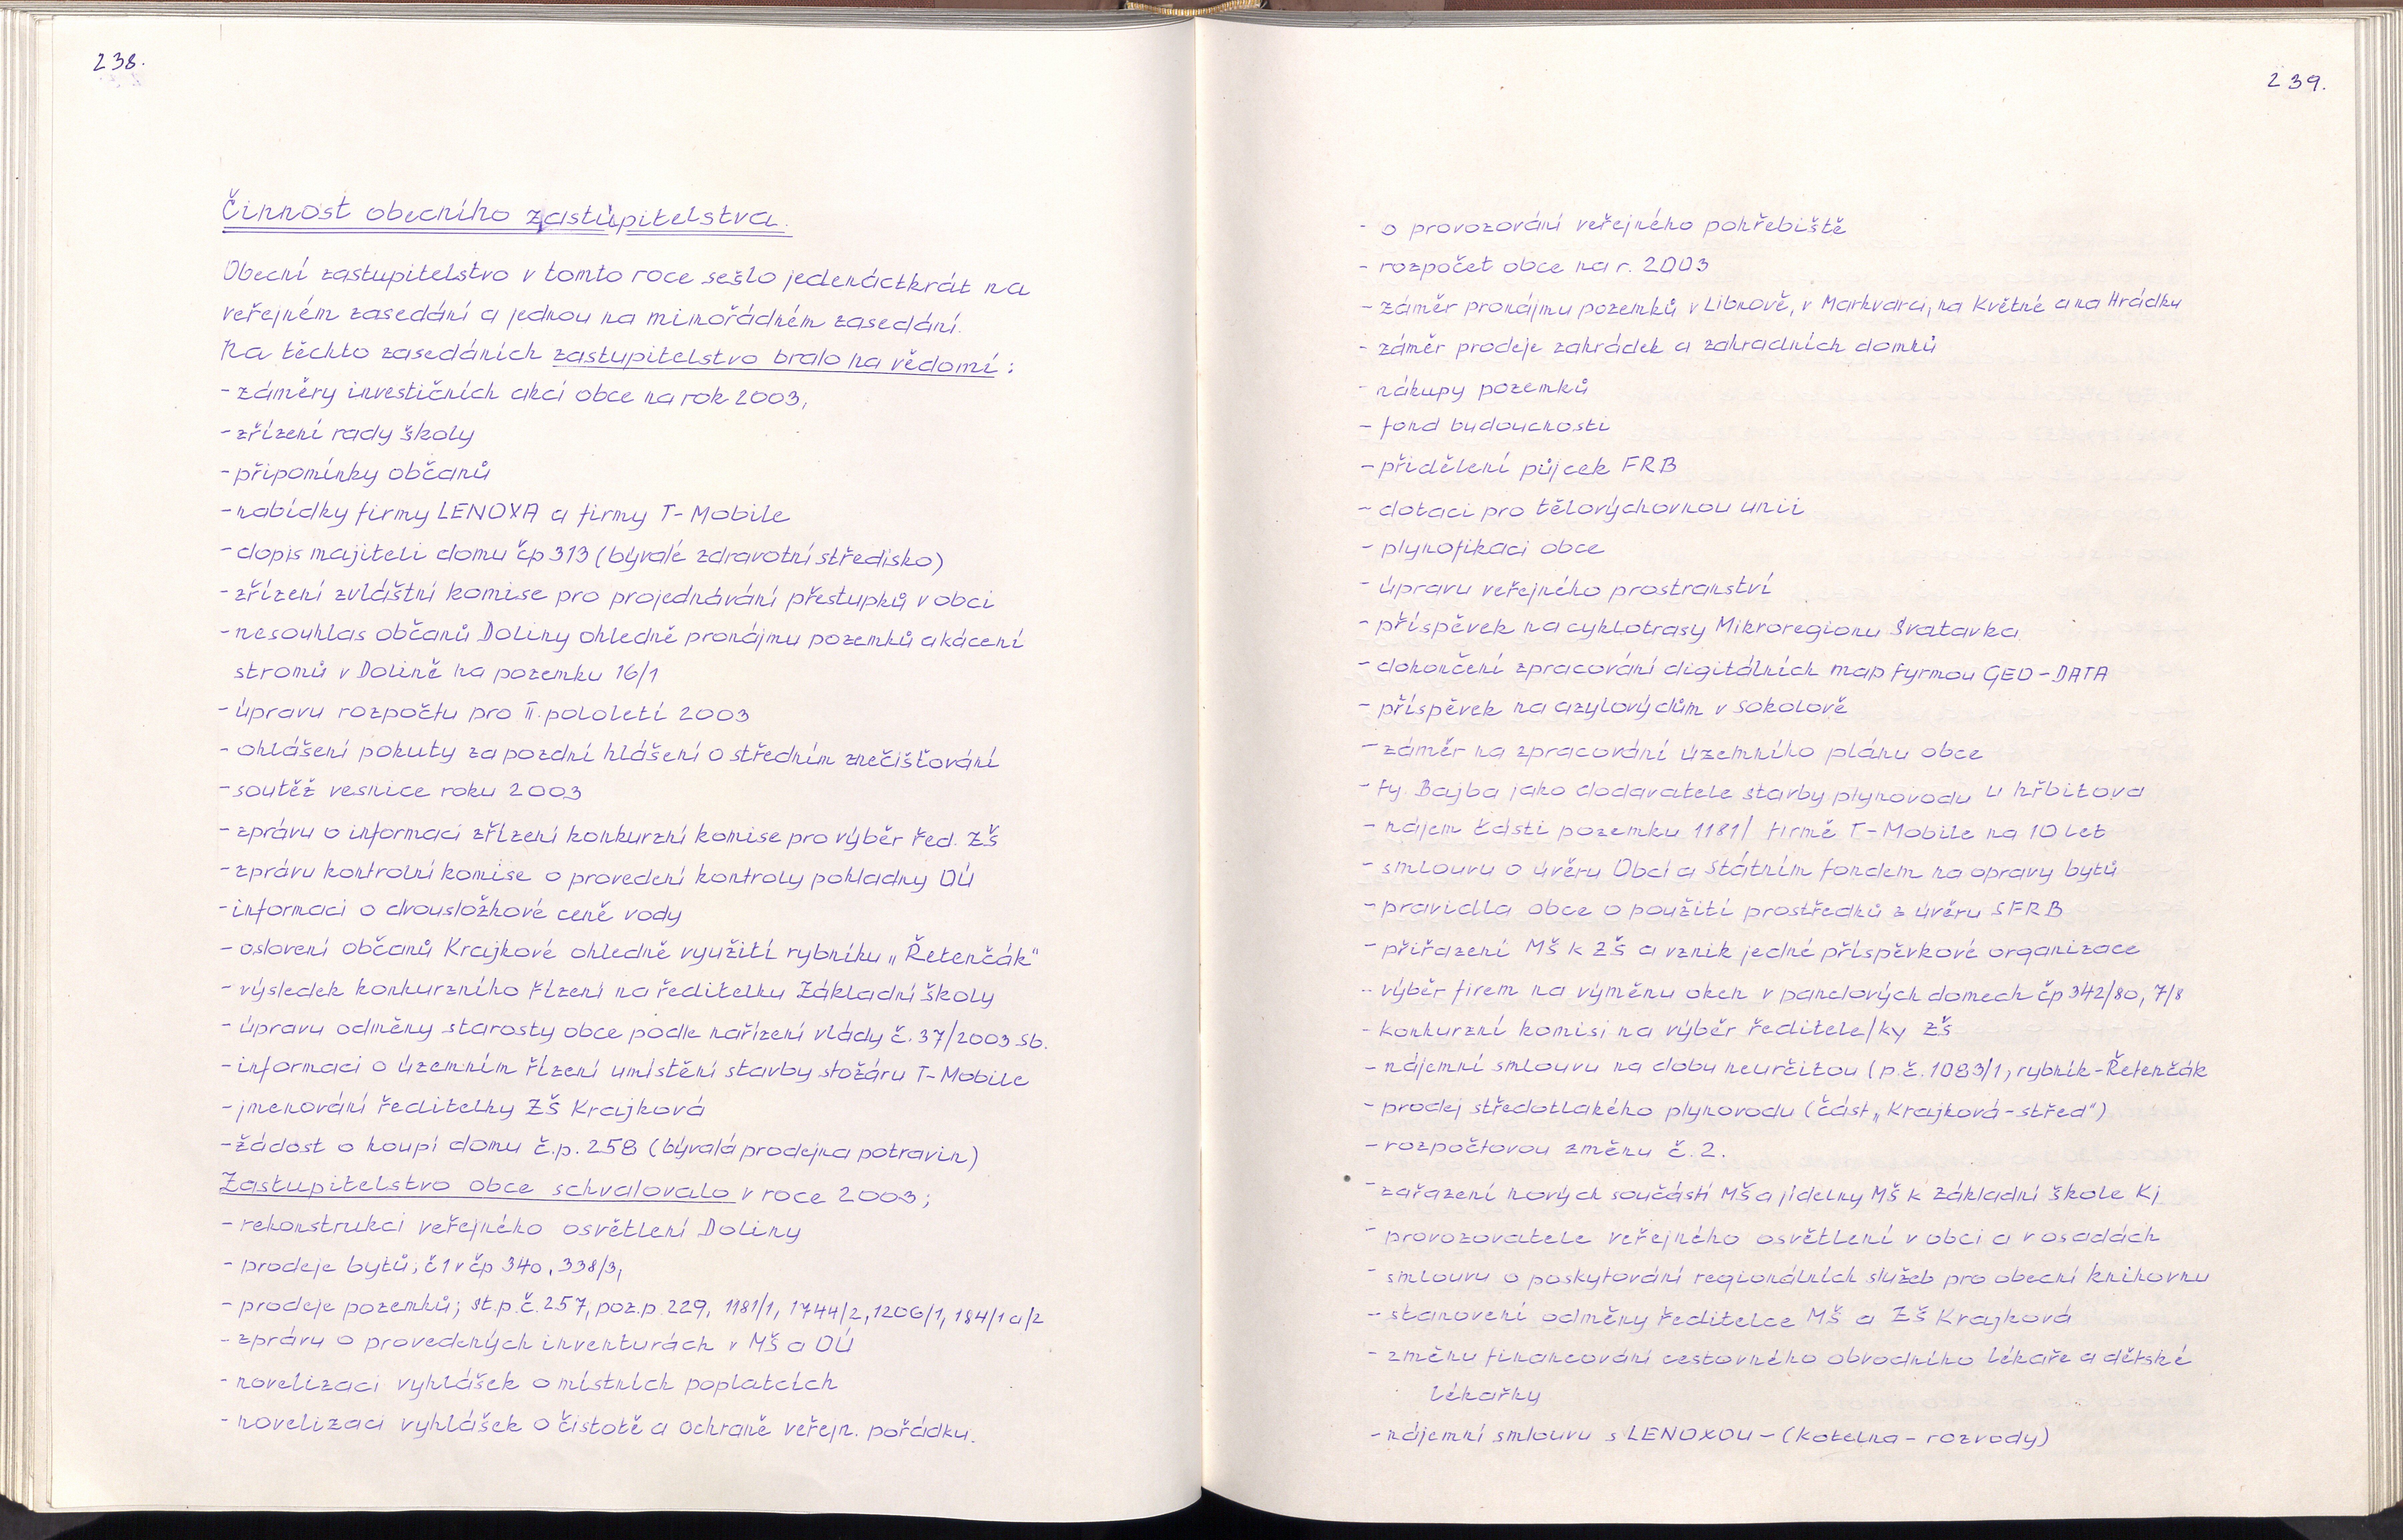 238.
Činnost obecního zastupitelstva.
Obecní zastupitelstvo v tomto roce sešlo jedenáctkrát na
veřejném zasedání a jednou na mimořádném zasedání.
Na těchto zasedáních zastupitelstvo bralo na vědomí:
- záměry investičních akcí obce na rok 2003,
- zřízení rady školy
- připomínky občanů
- nabídky firmy LENOXA a firmy T-Mobile
- dopis majiteli domu čp 313 (bývalé zdravotní středisko)
- zřízení zvláštní komise pro projednávání přestupků v obci
- nesouhlas občanů Doliny ohledně pronájmu pozemků a kácení
stromů v Dolině na pozemku 16/1
- úpravu rozpočtu pro II. pololetí 2003
- ohlášení pokuty za pozdní hlášení o středním znečišťování
- soutěž vesnice roku 2003
- zprávu o informaci zřízení konkurzní komise pro výběr řed. ZŠ
- zprávu kontrolní komise o provedení kontroly pokladny OÚ
- informaci o dvousložkové ceně vody
- oslovení občanů Krajkové ohledně využití rybníku „Řetenčák"
- výsledek konkurzního řízení na ředitelku Základní školy
- úpravu odměny starosty obce podle nařízení vlády č. 37/2003 Sb.
- informaci o územním řízení umístění stavby stožáru T-Mobile
- jmenování ředitelky ZŠ Krajková
- žádost o koupi domu č.p. 258 (bývalá prodejna potravin)
Zastupitelstvo obce schvalovalo v roce 2003;
- rekonstrukci veřejného osvětlení Doliny
- prodeje bytů; č1 v čp 340, 338/3,
- prodeje pozemků; st.p.č. 257, poz.p. 229, 1181/1, 1744/2, 1206/1, 184/1 a/2
- zprávu o provedených inventurách v MŠ a OÚ
- novelizaci vyhlášek o místních poplatcích
- novelizaci vyhlášek o čistotě a ochraně veřejn. pořádku.
239.
- o provozování veřejného pohřebiště
- rozpočet obce na r. 2003
- záměr pronájmu pozemků v Libnově, v Markvarci, na Květné a na Hrádku
- záměr prodeje zahrádek a zahradních domků
- nákupy pozemků
- fond budoucnosti
- přidělení půjcek FRB
- dotaci pro tělovýchovnou unii
- plynofikaci obce
- úpravu veřejného prostranství
- příspěvek na cyklotrasy Mikroregionu Svatavka
- dokončení zpracování digitálních map fyrmou GEO-DATA
- příspěvek na azylový dům v Sokolově
- záměr na zpracování územního plánu obce
- fy. Bajba jako dodavatele stavby plynovodu u hřbitova
- nájem části pozemku 1181/ firmě T-Mobile na 10 let
- smlouvu o úvěru Obcí a Státním fondem na opravy bytů
- pravidla obce o použití prostředků z úvěru SFRB
- přiřazení MŠ k ZŠ a vznik jedné příspěvkové organizace
- výběr firem na výměnu oken v panelových domech čp 342/80, 7/8
- konkurzní komisi na výběr ředitele/ky ZŠ
- nájemní smlouvu na dobu neurčitou (p.č. 1083/1, rybník-Řetenčák
- prodej středotlakého plynovodu (část „Krajková-střed")
- rozpočtovou změnu č. 2.
- zařazení nových součástí MŠ a jídelny MŠ k Základní škole Kj
- provozovatele veřejného osvětlení v obci a v osadách
- smlouvu o poskytování regionálních služeb pro obecní knihovnu
- stanovení odměny ředitelce MŠ a ZŠ Krajková
- změnu financování cestovného obvodního lékaře a dětské
lékařky
- nájemní smlouvu s LENOXOU - (kotelna - rozvody)